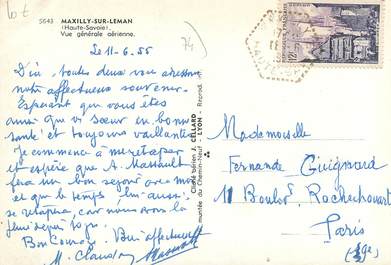 60f
5643 MAXILLY-SUR-LEMAN
(Haute-Savoie).
Vue générale aérienne.
74
Le 11-6-55
D'ici, toutes deux vous adressons
notre affectueux souvenir.
Espérant que vous êtes
ainsi que vos sœur en bonne
santé et toujours vaillante
Je commence à me retaper
et espère que A. Massault
fera un bon séjour avec moi
et que le temps lui aussi
se retapera, car nous avons la
pluie depuis
Bon Courage. Bien affectueusement
M. Claude Massault
Cliché aérien J. CELLARD
muntée du Chemin-Neuf - LYON - Reprod. int.
Mademoiselle
Fernande Guignard
11 Boulev. Rochechouart
Paris
(9e)